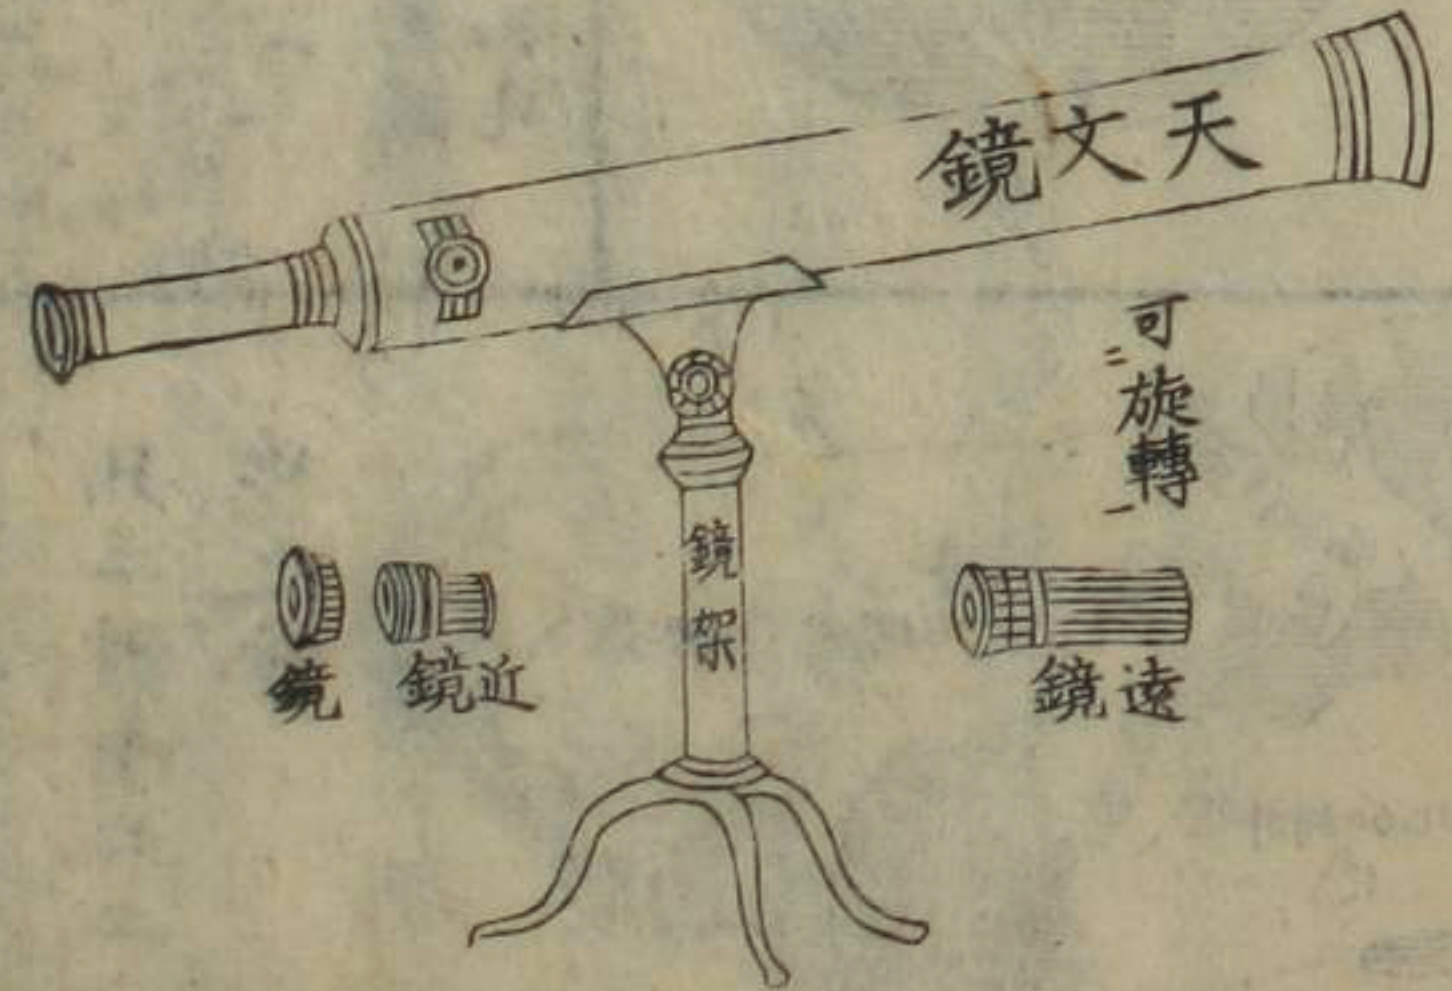 天文鏡
可旋轉
鏡架
遠鏡
近鏡
鏡